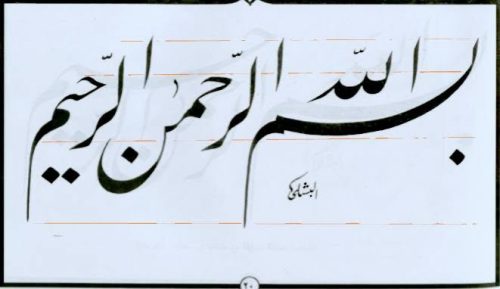 بسم الله الرحمن الرحيم
٢٠